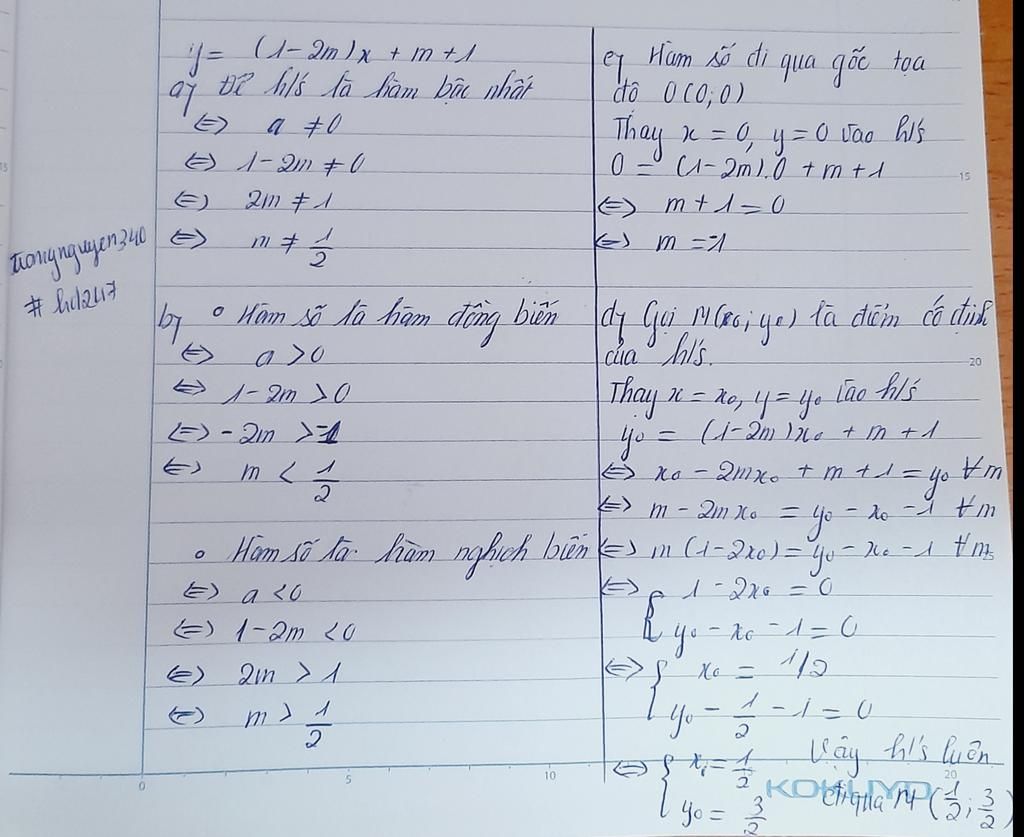 y = (1-2m)x + m+1
a, Để h/s là hàm bậc nhất
⇔ a ≠ 0
⇔ 1-2m ≠ 0
⇔ 2m ≠ 1
⇔ m ≠ 1/2
trongnguyen340
# hd247
b, ° Hàm số là hàm đồng biến
⇔ a > 0
⇔ 1-2m > 0
⇔ -2m > -1
⇔ m < 1/2
° Hàm số là hàm nghịch biến
⇔ a < 0
⇔ 1-2m < 0
⇔ 2m > 1
⇔ m > 1/2
c, Hàm số đi qua gốc tọa
độ O(0;0)
Thay x = 0, y = 0 vào h/s
0 = (1-2m).0 + m+1
⇔ m+1 = 0
⇔ m = -1
d, Gọi M(x₀; y₀) là điểm cố định
của h/s.
Thay x = x₀, y = y₀ vào h/s
y₀ = (1-2m)x₀ + m + 1
⇔ x₀ - 2mx₀ + m + 1 = y₀ ∀m
⇔ m - 2mx₀ = y₀ - x₀ - 1 ∀m
⇔ m(1-2x₀) = y₀ - x₀ - 1 ∀m
⇔ { 1-2x₀ = 0
y₀ - x₀ - 1 = 0
⇔ { x₀ = 1/2
y₀ - 1/2 - 1 = 0
⇔ { x₀ = 1/2
y₀ = 3/2
Vậy h/s luôn
đi qua M (1/2; 3/2)
15
20
0 5 10 20
KOKUYO